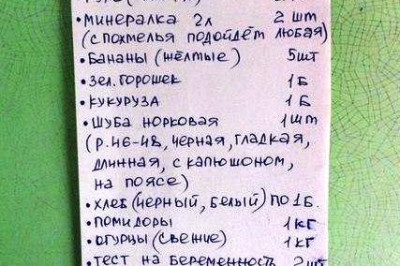 • МИНЕРАЛКА 2Л 2 ШТ
(С ПОХМЕЛЬЯ ПОДОЙДЁТ ЛЮБАЯ)
• БАНАНЫ (ЖЁЛТЫЕ) 5ШТ
• ЗЕЛ. ГОРОШЕК 1Б
• КУКУРУЗА 1Б
• ШУБА НОРКОВАЯ 1ШТ
(Р.46-48, ЧЕРНАЯ, ГЛАДКАЯ,
ДЛИННАЯ, С КАПЮШОНОМ,
НА ПОЯСЕ)
• ХЛЕБ (ЧЕРНЫЙ, БЕЛЫЙ) ПО 1Б.
• ПОМИДОРЫ 1КГ
• ОГУРЦЫ (СВЕЖИЕ) 1КГ
• ТЕСТ НА БЕРЕМЕННОСТЬ 2ШТ